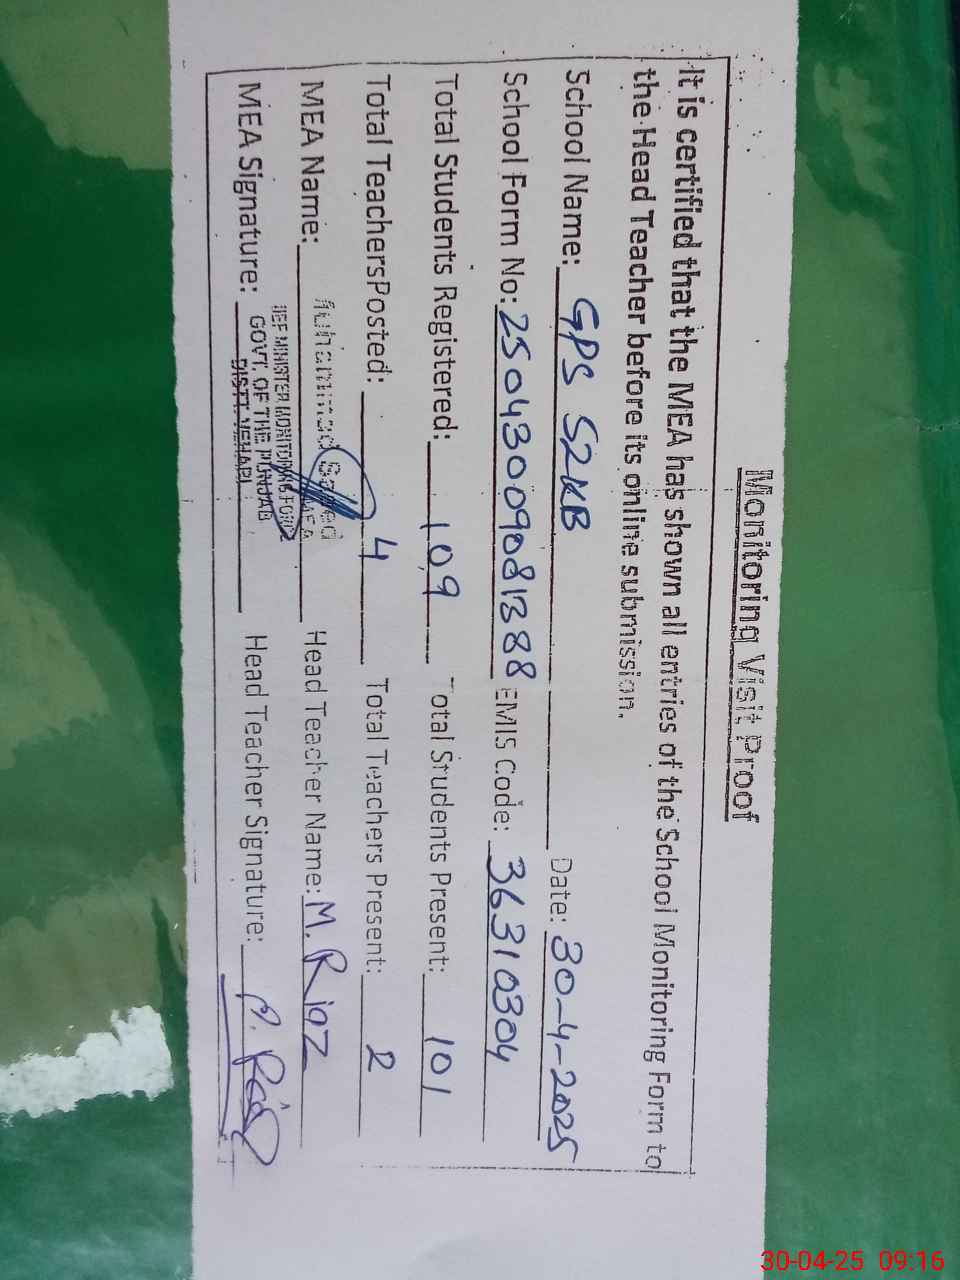 Monitoring Visit Proof
It is certified that the MEA has shown all entries of the School Monitoring Form to
the Head Teacher before its online submission.
School Name: GPS 52KB Date: 30-4-2025
School Form No: 25043009081388 EMIS Code: 36310304
Total Students Registered: 109 Total Students Present: 101
Total TeachersPosted: 4 Total Teachers Present: 2
MEA Name: Muhammad Saeed MEA Head Teacher Name: M. Riaz
IEF MINISTER MONITORING FORCE
GOVT. OF THE PUNJAB
DISTT. VEHARI
MEA Signature: Head Teacher Signature:
30-04-25 09:16